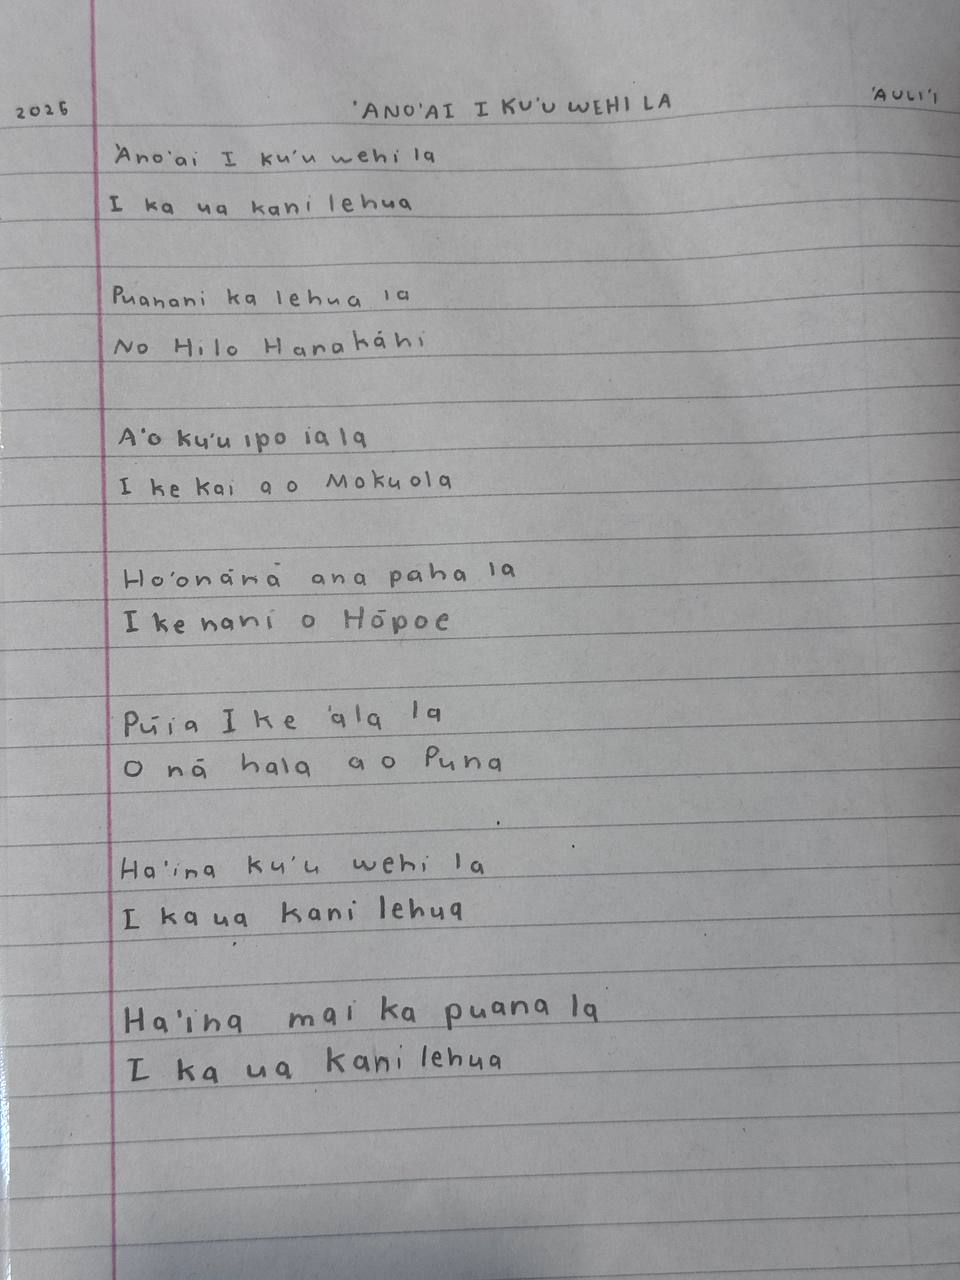 2025 'ANO'AI I KU'U WEHI LA 'AULI'I
'Ano'ai I ku'u wehi la
I ka ua kani lehua
Puanani ka lehua la
No Hilo Hanakāhi
A'o ku'u ipo ia la
I ke kai a o Mokuola
Ho'onānā ana paha la
I ke nani o Hōpoe
Pūia I ke 'ala la
O nā hala a o Puna
Ha'ina ku'u wehi la
I ka ua kani lehua
Ha'ina mai ka puana la
I ka ua kani lehua